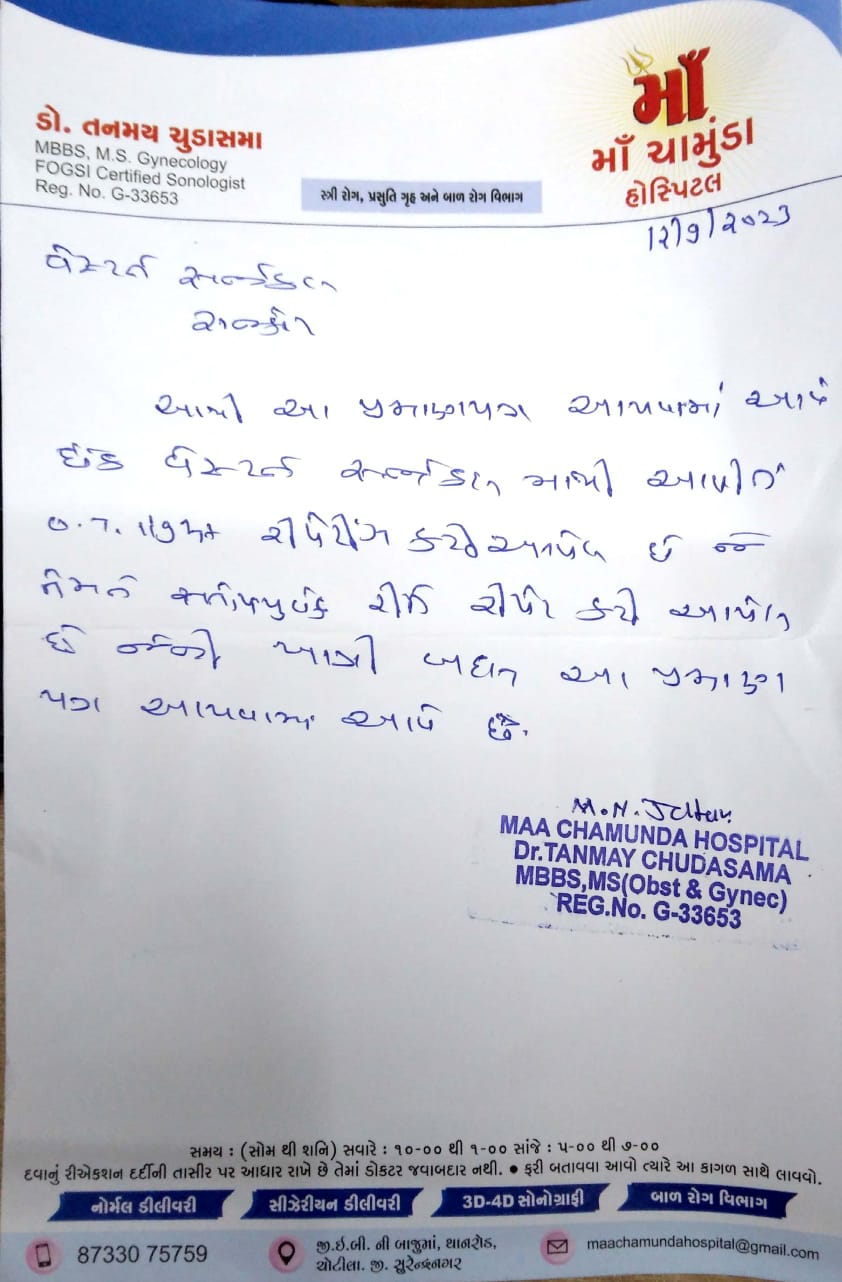 ડો. તનમય ચુડાસમા
MBBS, M.S. Gynecology
FOGSI Certified Sonologist
Reg. No. G-33653
સ્ત્રી રોગ, પ્રસુતિ ગૃહ અને બાળ રોગ વિભાગ
માઁ
માઁ ચામુંડા
હોસ્પિટલ
12/9/2023
વેસ્ટર્ન સર્જીકલ
રાજકોટ
આથી આ પ્રમાણપત્ર આપવામાં આવે
છેકે વેસ્ટર્ન સર્જીકલ માથી આવીને
રીપેરીંગ કરી આપેલ છે જે
તેમને સંતોષપુર્વક રીતે રીપેર કરી આપેલ
છે જેની ખાત્રી બદલ આ પ્રમાણ
પત્ર આપવામાં આવે છે.
MAA CHAMUNDA HOSPITAL
Dr.TANMAY CHUDASAMA
MBBS,MS(Obst & Gynec)
REG.No. G-33653
સમય : (સોમ થી શનિ) સવારે : ૧૦-૦૦ થી ૧-૦૦ સાંજે : ૫-૦૦ થી ૭-૦૦
દવાનું રીએકશન દર્દીની તાસીર પર આધાર રાખે છે તેમાં ડોકટર જવાબદાર નથી. ● ફરી બતાવવા આવો ત્યારે આ કાગળ સાથે લાવવો.
નોર્મલ ડીલીવરી સીઝેરીયન ડીલીવરી 3D-4D સોનોગ્રાફી બાળ રોગ વિભાગ
87330 75759
જી.ઇ.બી. ની બાજુમાં, થાનરોડ,
ચોટીલા. જી. સુરેન્દ્રનગર
maachamundahospital@gmail.com